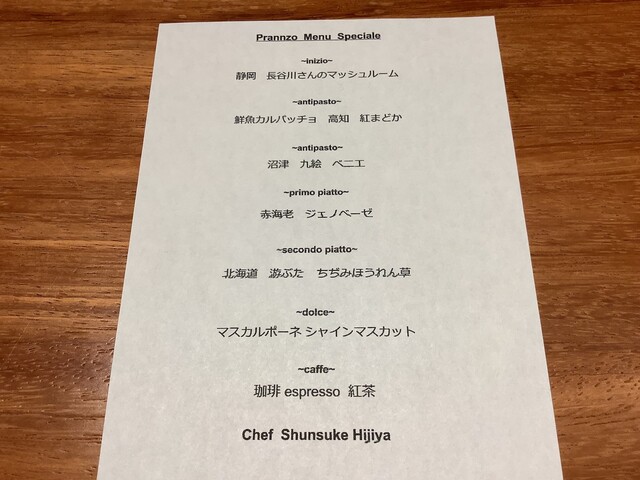 Prannzo Menu Speciale
~inizio~
静岡 長谷川さんのマッシュルーム
~antipasto~
鮮魚カルパッチョ 高知 紅まどか
~antipasto~
沼津 九絵 ベニエ
~primo piatto~
赤海老 ジェノベーゼ
~secondo piatto~
北海道 遊ぶた ちぢみほうれん草
~dolce~
マスカルポーネ シャインマスカット
~caffe~
珈琲 espresso 紅茶
Chef Shunsuke Hijiya